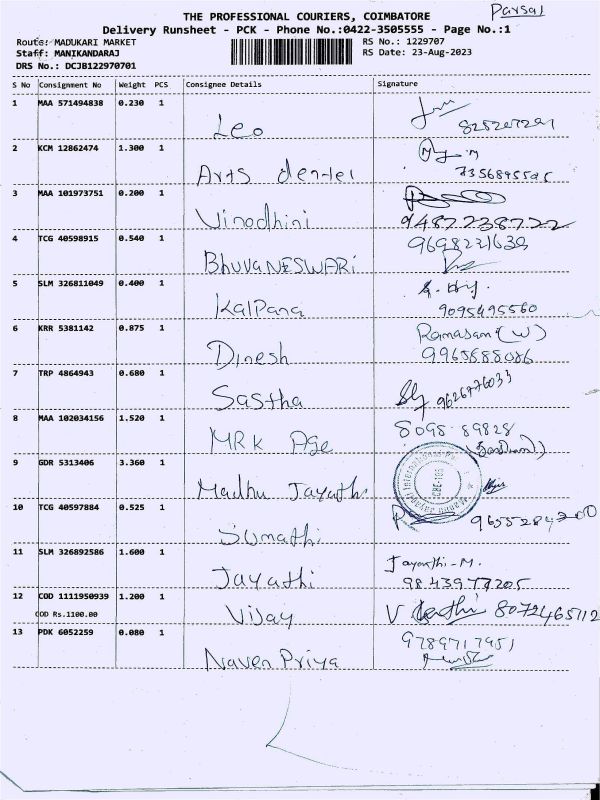 THE PROFESSIONAL COURIERS, COIMBATORE Parsal
Delivery Runsheet - PCK - Phone No.:0422-3505555 - Page No.:1
Route: MADUKARI MARKET RS No.: 1229707
Staff: MANIKANDARAJ RS Date: 23-Aug-2023
DRS No.: DCJB122970701
S No Consignment No Weight PCS Consignee Details Signature
1 MAA 571494838 0.230 1
Leo
2 KCM 12862474 1.300 1
Arts dental
3 MAA 101973751 0.200 1
Vinodhini 9487238722
4 TCG 40598915 0.540 1 9698221639
BHUVANESWARi
5 SLM 326811049 0.400 1
Kalpana 9095495560
6 KRR 5381142 0.875 1
Dinesh 9965688086
7 TRP 4864943 0.680 1
Sastha 9626976033
8 MAA 102034156 1.520 1 8098 89828
MRK Age
9 GDR 5313406 3.360 1
Madhu Jayathi
10 TCG 40597884 0.525 1
Sumathi 9655284200
11 SLM 326892586 1.600 1 Jayanthi-M.
Jayathi 9843977205
12 COD 1111950939 1.200 1
COD Rs.1100.00 Vijay 8072465112
13 PDK 6052259 0.080 1 9789717951
Naven Priya